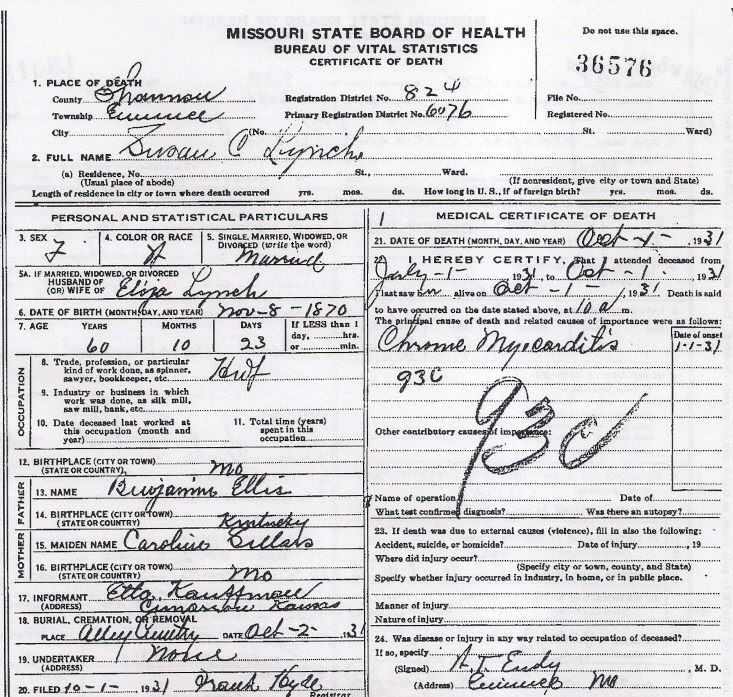 MISSOURI STATE BOARD OF HEALTH
BUREAU OF VITAL STATISTICS
CERTIFICATE OF DEATH
Do not use this space.
36576
1. PLACE OF DEATH
County Shannon Registration District No. 824 File No.
Township Eminence Primary Registration District No. 6076 Registered No.
City (No. St. Ward)
2. FULL NAME Susan C Lynch
(a) Residence, No. St., Ward.
(Usual place of abode) (If nonresident, give city or town and State)
Length of residence in city or town where death occurred yrs. mos. ds. How long in U. S., if of foreign birth? yrs. mos. ds.
PERSONAL AND STATISTICAL PARTICULARS
3. SEX 4. COLOR OR RACE 5. SINGLE, MARRIED, WIDOWED, OR
DIVORCED (write the word)
F W Married
5A. IF MARRIED, WIDOWED, OR DIVORCED
HUSBAND OF
(OR) WIFE OF Eliza Lynch
6. DATE OF BIRTH (MONTH, DAY, AND YEAR) Nov-8-1870
7. AGE YEARS MONTHS DAYS If LESS than 1
day, hrs.
60 10 23 or min.
OCCUPATION
8. Trade, profession, or particular
kind of work done, as spinner,
sawyer, bookkeeper, etc. Hwf
9. Industry or business in which
work was done, as silk mill,
saw mill, bank, etc.
10. Date deceased last worked at
this occupation (month and
year)
11. Total time (years)
spent in this
occupation
12. BIRTHPLACE (CITY OR TOWN)
(STATE OR COUNTRY) Mo
FATHER
13. NAME Benjamin Ellis
14. BIRTHPLACE (CITY OR TOWN)
(STATE OR COUNTRY) Kentucky
MOTHER
15. MAIDEN NAME Caroline Sellars
16. BIRTHPLACE (CITY OR TOWN)
(STATE OR COUNTRY) Mo
17. INFORMANT Etta Kauffman
(ADDRESS) Cimarron Kansas
18. BURIAL, CREMATION, OR REMOVAL
PLACE Alley DATE Oct-2- 1931
19. UNDERTAKER None
(ADDRESS)
20. FILED 10-1- 1931 Frank Hyde
Registrar
MEDICAL CERTIFICATE OF DEATH
21. DATE OF DEATH (MONTH, DAY, AND YEAR) Oct-1- 1931
22. I HEREBY CERTIFY, That I attended deceased from
July-1- 1931, to Oct-1- 1931
I last saw h alive on Oct-1-, 1931 Death is said
to have occurred on the date stated above, at 10 a m.
The principal cause of death and related causes of importance were as follows:
Date of onset
Chronic Myocarditis 1-1-31
93C
93c
Other contributory causes of importance:
Name of operation Date of
What test confirmed diagnosis? Was there an autopsy?
23. If death was due to external causes (violence), fill in also the following:
Accident, suicide, or homicide? Date of injury , 19
Where did injury occur?
(Specify city or town, county, and State)
Specify whether injury occurred in industry, in home, or in public place.
Manner of injury
Nature of injury
24. Was disease or injury in any way related to occupation of deceased?
If so, specify
(Signed) A. T. Eudy , M. D.
(Address) Eminence Mo